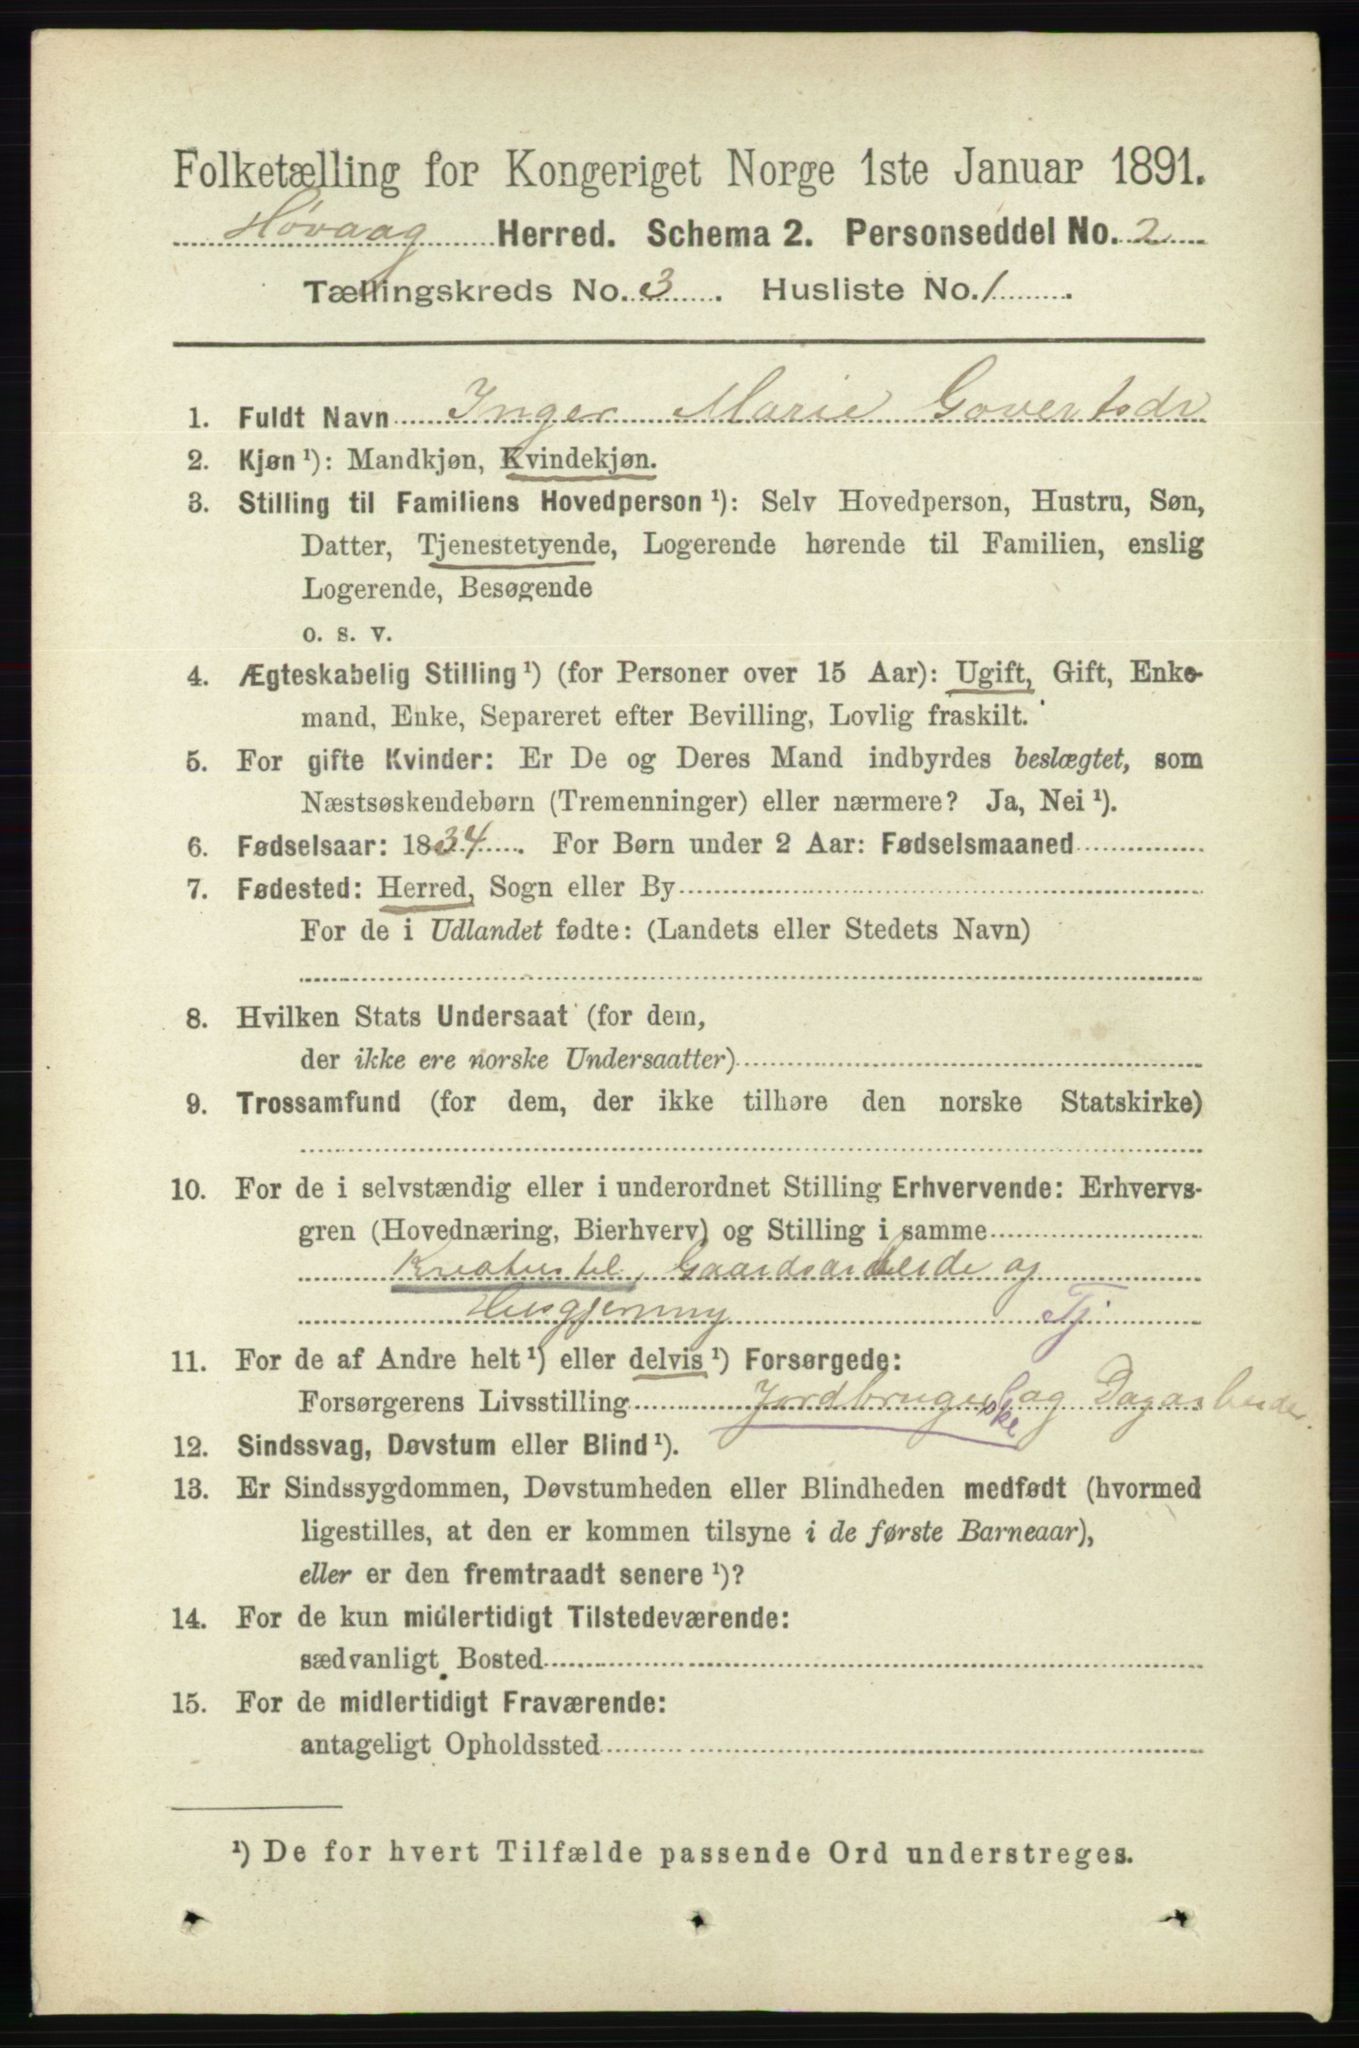 Folketælling for Kongeriget Norge 1ste Januar 1891.
Høvaag Herred. Schema 2. Personseddel No. 2
Tællingskreds No. 3. Husliste No. 1.
1. Fuldt Navn Inger Marie Govertsdr
2. Kjøn ¹): Mandkjøn, Kvindekjøn.
3. Stilling til Familiens Hovedperson ¹): Selv Hovedperson, Hustru, Søn,
Datter, Tjenestetyende, Logerende hørende til Familien, enslig
Logerende, Besøgende
o. s. v.
4. Ægteskabelig Stilling ¹) (for Personer over 15 Aar): Ugift, Gift, Enke-
mand, Enke, Separeret efter Bevilling, Lovlig fraskilt.
5. For gifte Kvinder: Er De og Deres Mand indbyrdes beslægtet, som
Næstsøskendebørn (Tremenninger) eller nærmere? Ja, Nei ¹).
6. Fødselsaar: 1834. For Børn under 2 Aar: Fødselsmaaned
7. Fødested: Herred, Sogn eller By
For de i Udlandet fødte: (Landets eller Stedets Navn)
8. Hvilken Stats Undersaat (for dem,
der ikke ere norske Undersaatter)
9. Trossamfund (for dem, der ikke tilhøre den norske Statskirke)
10. For de i selvstændig eller i underordnet Stilling Erhvervende: Erhvervs-
gren (Hovednæring, Bierhverv) og Stilling i samme
Kreaturstel, Gaardsarbeide og
Husgjerning Tj
11. For de af Andre helt ¹) eller delvis ¹) Forsørgede:
Forsørgerens Livsstilling Jordbruger og Dagarbeider.
ske
12. Sindssvag, Døvstum eller Blind ¹).
13. Er Sindssygdommen, Døvstumheden eller Blindheden medfødt (hvormed
ligestilles, at den er kommen tilsyne i de første Barneaar),
eller er den fremtraadt senere ¹)?
14. For de kun midlertidigt Tilstedeværende:
sædvanligt Bosted
15. For de midlertidigt Fraværende:
antageligt Opholdssted
¹) De for hvert Tilfælde passende Ord understreges.